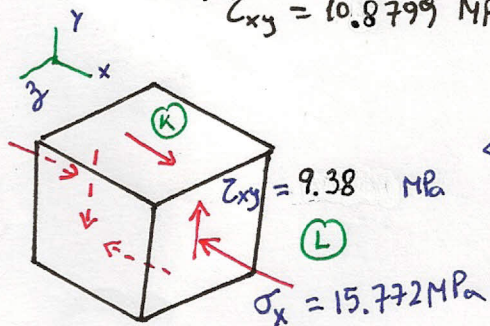 τxy = 10.8799 MP
Y
X
z
K
τxy = 9.38 MPa
L
σx = 15.772 MPa